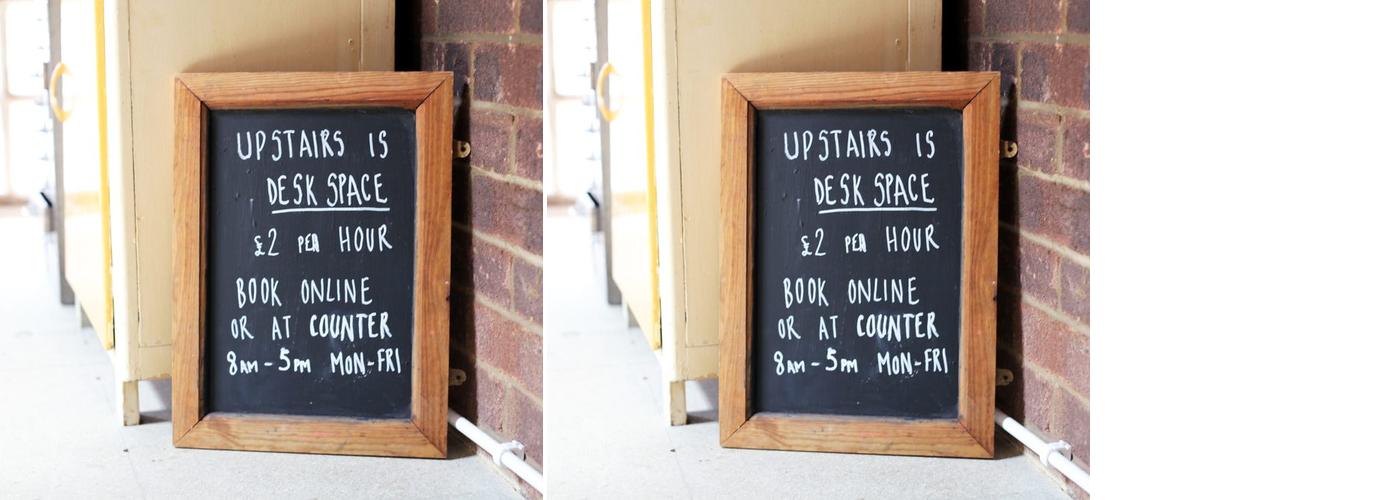 UPSTAIRS IS
DESK SPACE
£2 PER HOUR
BOOK ONLINE
OR AT COUNTER
8AM - 5PM MON-FRI
UPSTAIRS IS
DESK SPACE
£2 PER HOUR
BOOK ONLINE
OR AT COUNTER
8AM - 5PM MON-FRI